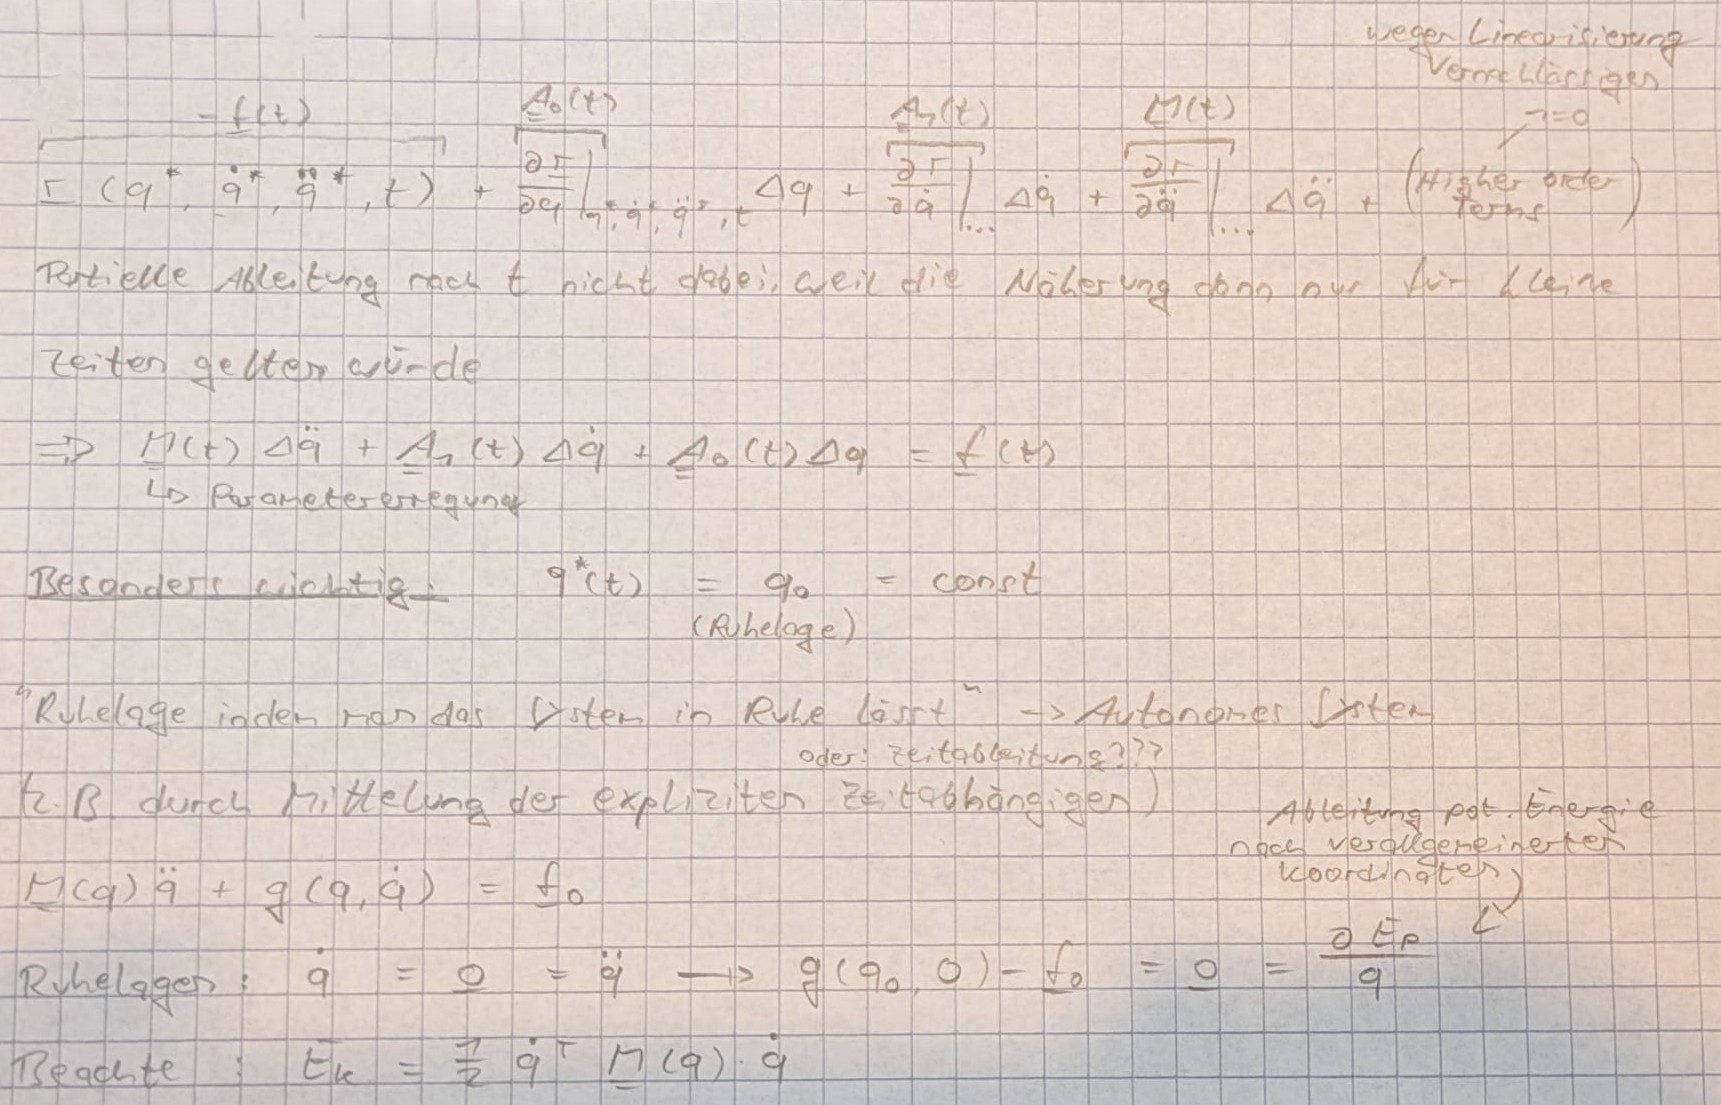 wegen Linearisierung
vernachlässigen
-f(t) A₀(t) A₁(t) M(t) →=0
r (q*, q̇*, q̈*, t) + ∂r/∂q |q*, q̇*, q̈*, t Δq + ∂r/∂q̇ |... Δq̇ + ∂r/∂q̈ |... Δq̈ + (Higher order terms)
Partielle Ableitung nach t nicht dabei, weil die Näherung dann nur für kleine
Zeiten gelten würde
⇒ M(t) Δq̈ + A₁(t) Δq̇ + A₀(t) Δq = f(t)
↳ Parametererregung
Besonders wichtig: q*(t) = q₀ = const
(Ruhelage)
"Ruhelage indem man das System in Ruhe lässt" → Autonomes System
oder: Zeitableitung???
(z.B durch Mittelung der expliziten Zeitabhängigen)
Ableitung pot. Energie
nach verallgemeinerten
Koordinaten
M(q) q̈ + g(q, q̇) = f₀
Ruhelagen: q̇ = 0 = q̈ → g(q₀, 0) - f₀ = 0 = ∂Ep/q
Beachte: Ek = 1/2 q̇ᵀ M(q) · q̇